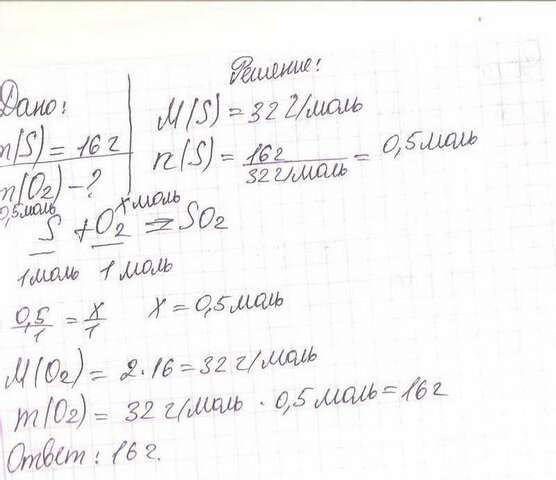 Решение:
Дано:
m(S) = 16 г
m(O₂) - ?
M(S) = 32 г/моль
n(S) = 16г / 32 г/моль = 0,5 моль
0,5 моль x моль
S + O₂ = SO₂
1 моль 1 моль
0,5/1 = x/1 x = 0,5 моль
M(O₂) = 2·16 = 32 г/моль
m(O₂) = 32 г/моль · 0,5 моль = 16 г
Ответ: 16 г.